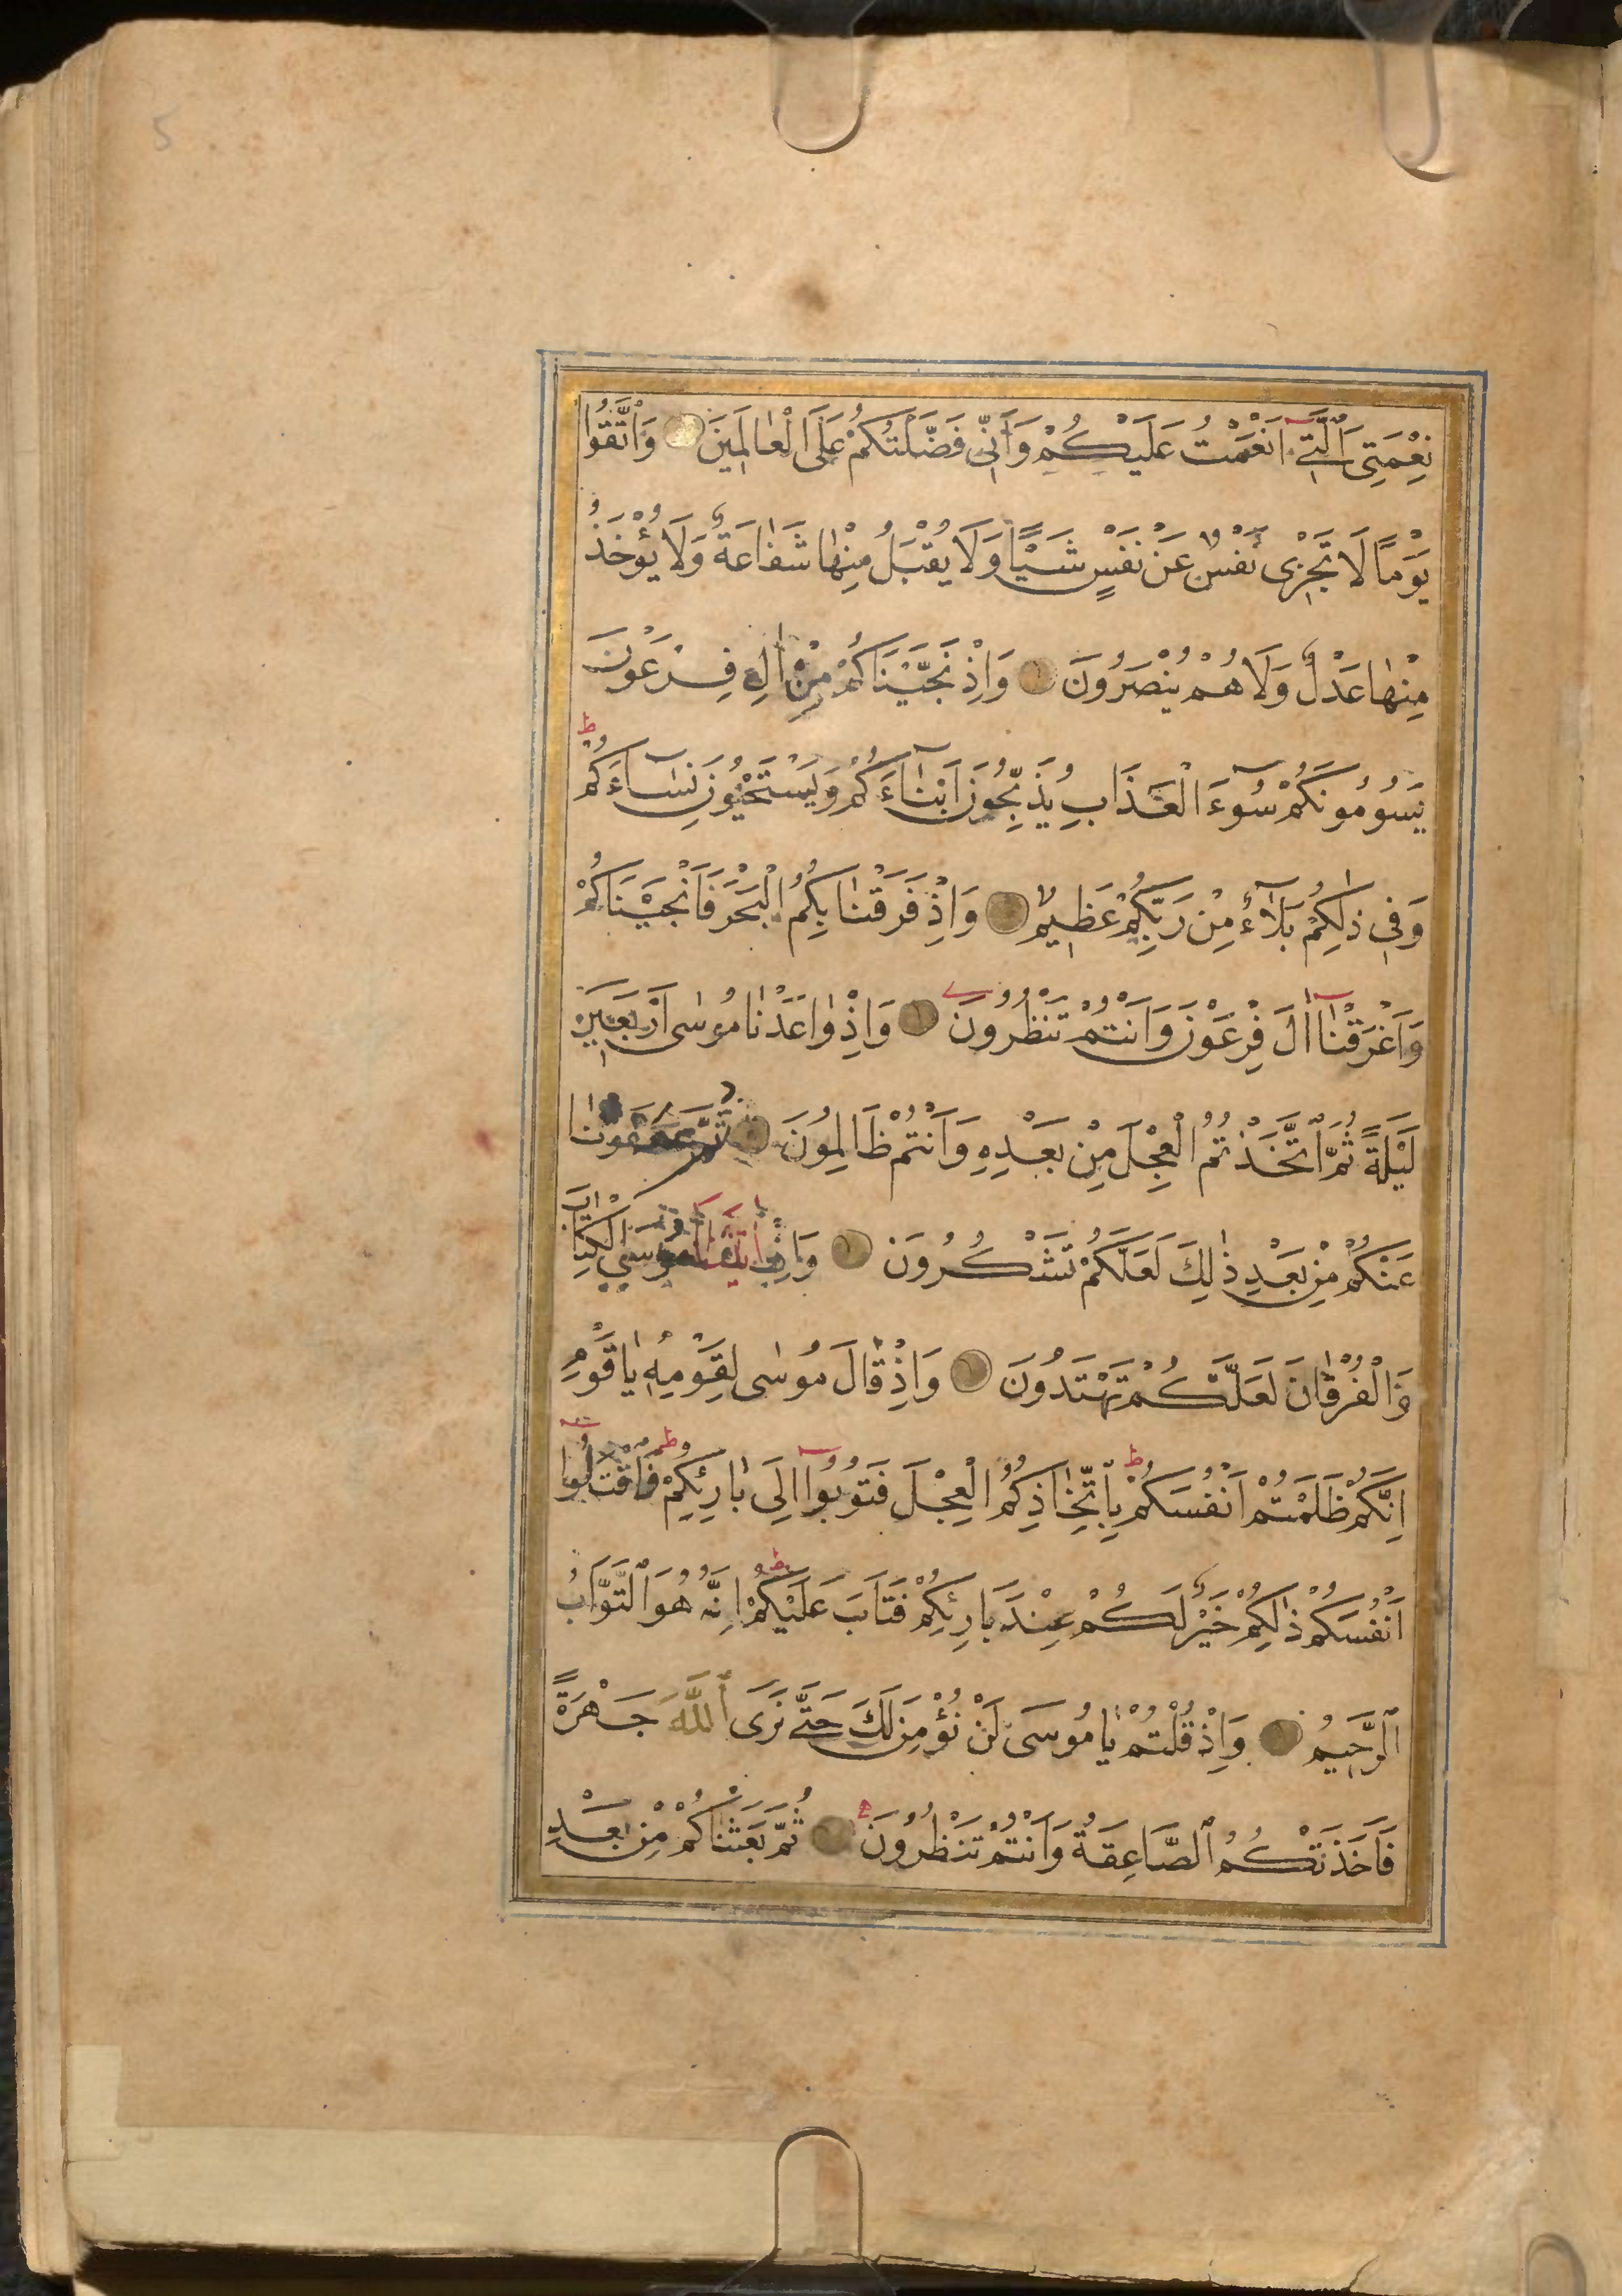 5
نِعْمَتِيَ الَّتِي اَنْعَمْتُ عَلَيْكُمْ وَاَنِّي فَضَّلْتُكُمْ عَلَى الْعَالَمِينَ وَاتَّقُوا
يَوْمًا لَا تَجْزِي نَفْسٌ عَنْ نَفْسٍ شَيْئًا وَلَا يُقْبَلُ مِنْهَا شَفَاعَةٌ وَلَا يُؤْخَذُ
مِنْهَا عَدْلٌ وَلَا هُمْ يُنْصَرُونَ وَاِذْ نَجَّيْنَاكُمْ مِنْ اٰلِ فِرْعَوْنَ
يَسُومُونَكُمْ سُوٓءَ الْعَذَابِ يُذَبِّحُونَ اَبْنَآءَكُمْ وَيَسْتَحْيُونَ نِسَآءَكُمْ ط
وَفِي ذٰلِكُمْ بَلَآءٌ مِنْ رَبِّكُمْ عَظِيمٌ وَاِذْ فَرَقْنَا بِكُمُ الْبَحْرَ فَاَنْجَيْنَاكُمْ
وَاَغْرَقْنَآ اٰلَ فِرْعَوْنَ وَاَنْتُمْ تَنْظُرُونَ وَاِذْ وَاعَدْنَا مُوسٰى اَرْبَعِينَ
لَيْلَةً ثُمَّ اتَّخَذْتُمُ الْعِجْلَ مِنْ بَعْدِهِ وَاَنْتُمْ ظَالِمُونَ ثُمَّ عَفَوْنَا
عَنْكُمْ مِنْ بَعْدِ ذٰلِكَ لَعَلَّكُمْ تَشْكُرُونَ وَاِذْ اٰتَيْنَا مُوسَى الْكِتَابَ
وَالْفُرْقَانَ لَعَلَّكُمْ تَهْتَدُونَ وَاِذْ قَالَ مُوسٰى لِقَوْمِهِ يَا قَوْمِ
اِنَّكُمْ ظَلَمْتُمْ اَنْفُسَكُمْ ط بِاتِّخَاذِكُمُ الْعِجْلَ فَتُوبُوٓا اِلٰى بَارِئِكُمْ ط فَاقْتُلُوٓا
اَنْفُسَكُمْ ذٰلِكُمْ خَيْرٌ لَكُمْ عِنْدَ بَارِئِكُمْ فَتَابَ عَلَيْكُمْ ط اِنَّهُ هُوَ التَّوَّابُ
الرَّحِيمُ وَاِذْ قُلْتُمْ يَا مُوسٰى لَنْ نُؤْمِنَ لَكَ حَتّٰى نَرَى اللّٰهَ جَهْرَةً
فَاَخَذَتْكُمُ الصَّاعِقَةُ وَاَنْتُمْ تَنْظُرُونَ ثُمَّ بَعَثْنَاكُمْ مِنْ بَعْدِ